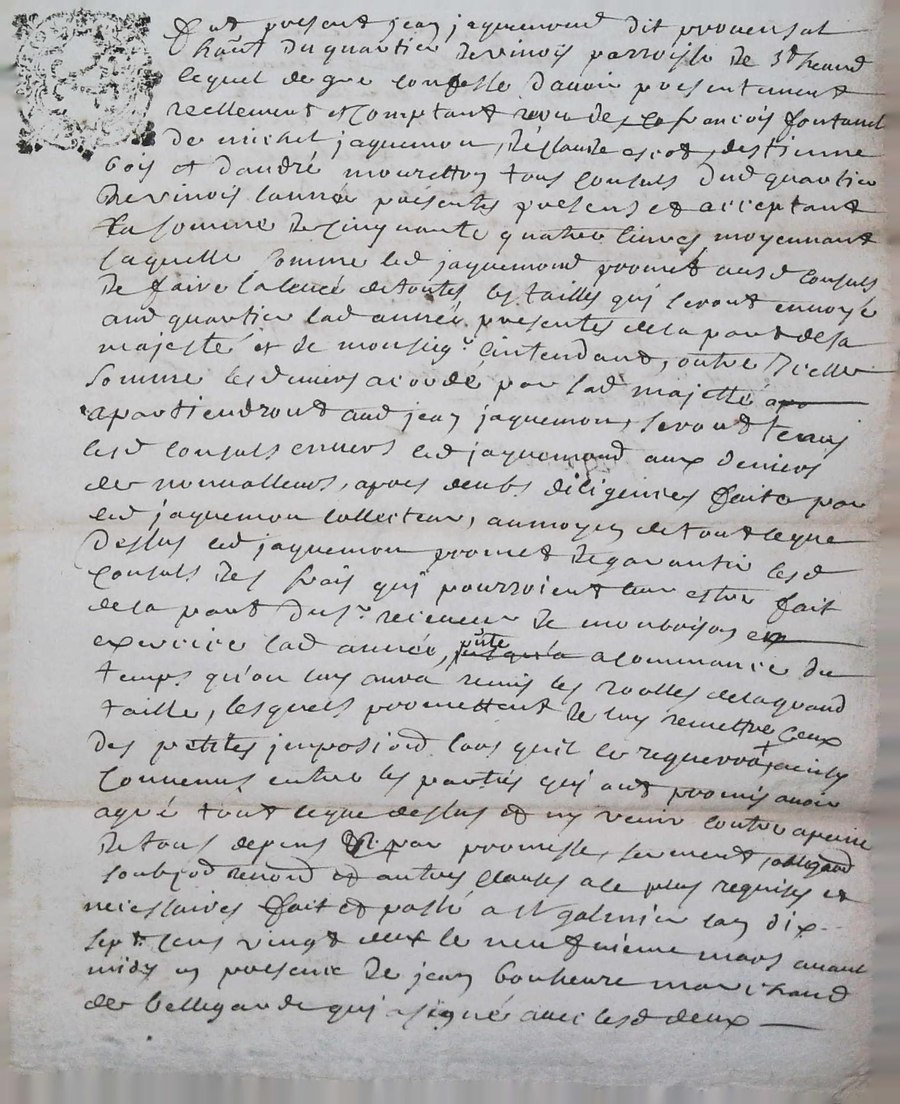 fut present jean jaquemond dit prouensal
hant du quartier de vinois parroisse de
lequel de gre confesse dauoir presentement
reellement et comptant receu de françois fontanel
de michel jaquemon, de claude ascot, destienne
bois et dandré mouretton tous consuls dud quartier
de vinois lannée presentes presens et acceptant
la somme de cinquante quatre liures moyennant
laquelle somme led jaquemond promet ausd consuls
de faire laleué de toutes les tailles quy seront enuoyé
aud quartier lad année presentes de la part de sa
majesté et de monseigr lintendant, outre
somme les deniers acordé par lad majesté
apartiendront aud jean jaquemon, seront tenus
lesd consuls enuers led jaquemond aux deniers
des nonualleurs, apres deubs diligences faite par
led jaquemon collecteur, au moyen de tout ceque
dessus led jaquemon promet de garantir lesd
consuls des frais quy pourroient leur estre fait
de la part du sr receueur de monbrison en
exercice lad année, pnte jusqu'a a commance du
temps qu'on luy aura remis les roolles de la grand
taille, lesquels promettent de luy remettre ceux
des petites imposiond lors quil le requerra + ainsy
conuenus entre les parties quy ont promis auoir
agreé tout ceque dessus et ny venir contre apeine
de tous depens par promesse, serment, obligaod
soubjod renond et autres clauses a ce plus requises et
necessaires fait et passé a st galmier lan dix
sept cens vingt deux le neufuieme mars auant
midy en presence de jean bonheure marchand
de bellegarde quy a signé auec lesd deux